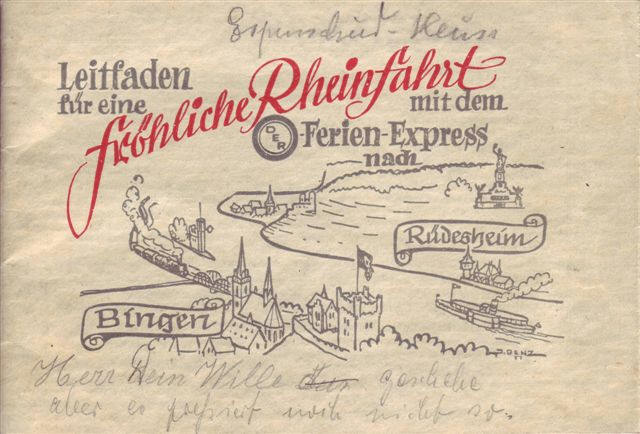 Leitfaden
für eine
fröhliche Rheinfahrt
mit dem
DER -Ferien-Express
nach
Rüdesheim
Bingen
Herr Dein Wille geschehe
aber es passiert noch nicht so.